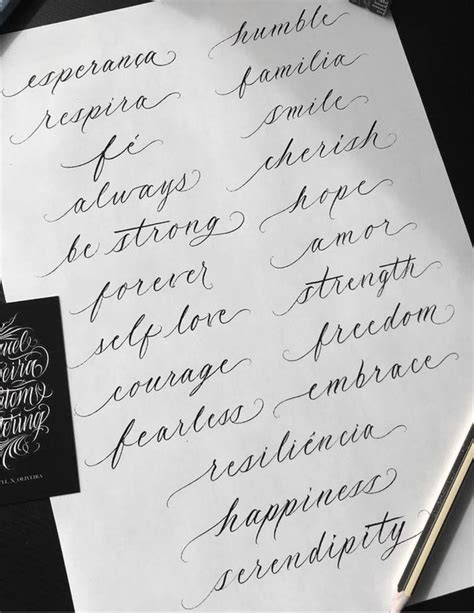 esperança
respira
fé
always
be strong
forever
self love
courage
fearless
humble
familia
smile
cherish
hope
amor
strength
freedom
embrace
resiliência
happiness
serendipity